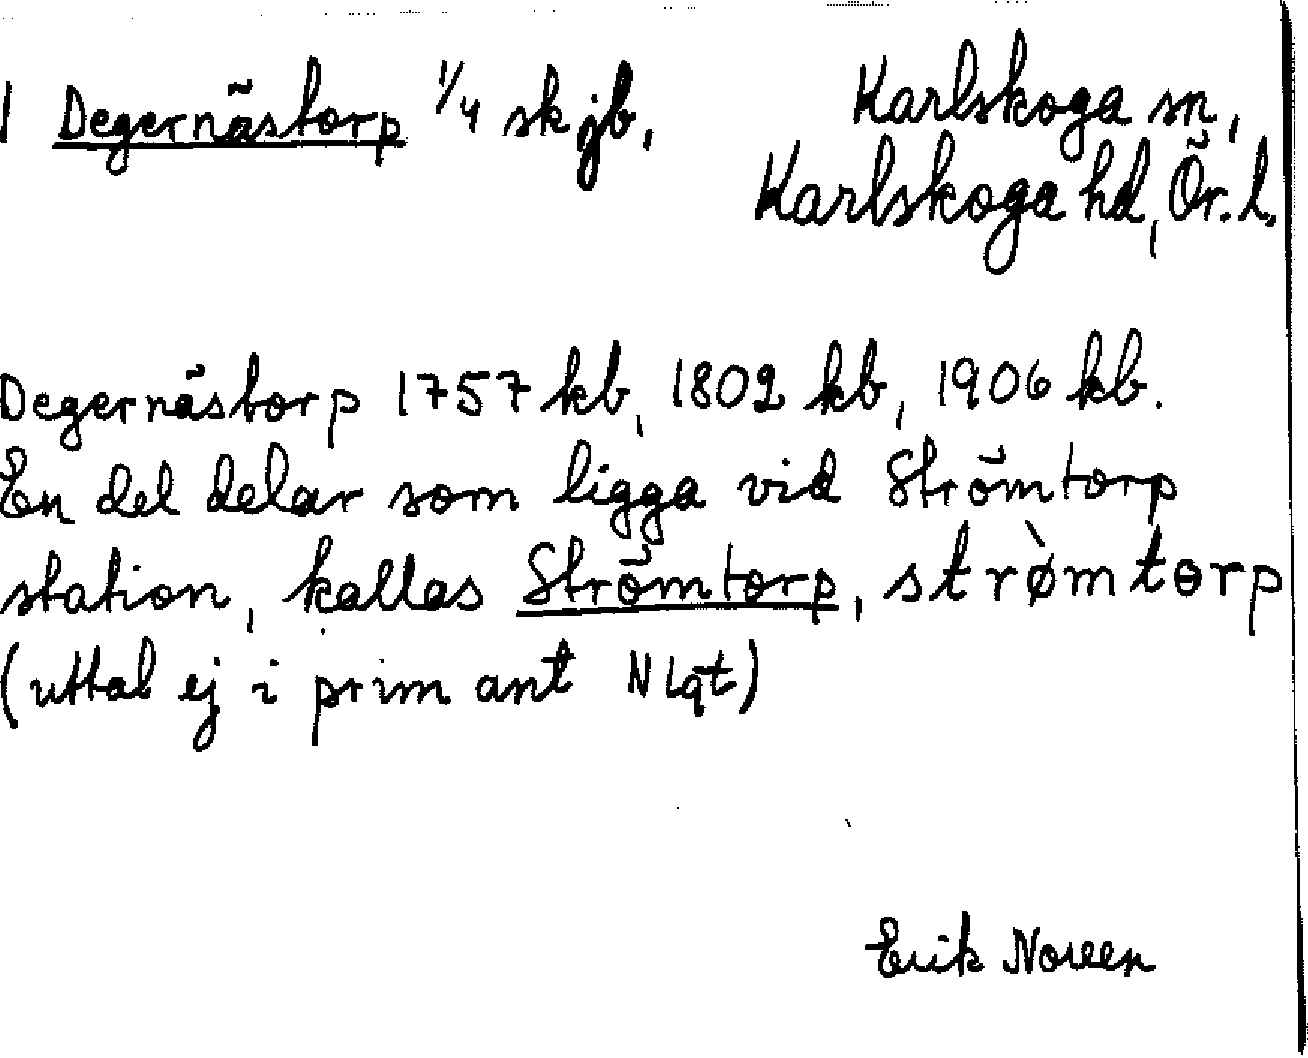 1 Degernästorp 1/4 skjb, Karlskoga sn,
Karlskoga hd, Ör. l.
Degernästorp 1757 kb, 1802 kb, 1906 kb.
En del delar som ligga vid Strömtorp
station, kallas Strömtorp, strø̀mtɵrp
(uttal ej i prim ant NLqt)
Erik Noreen